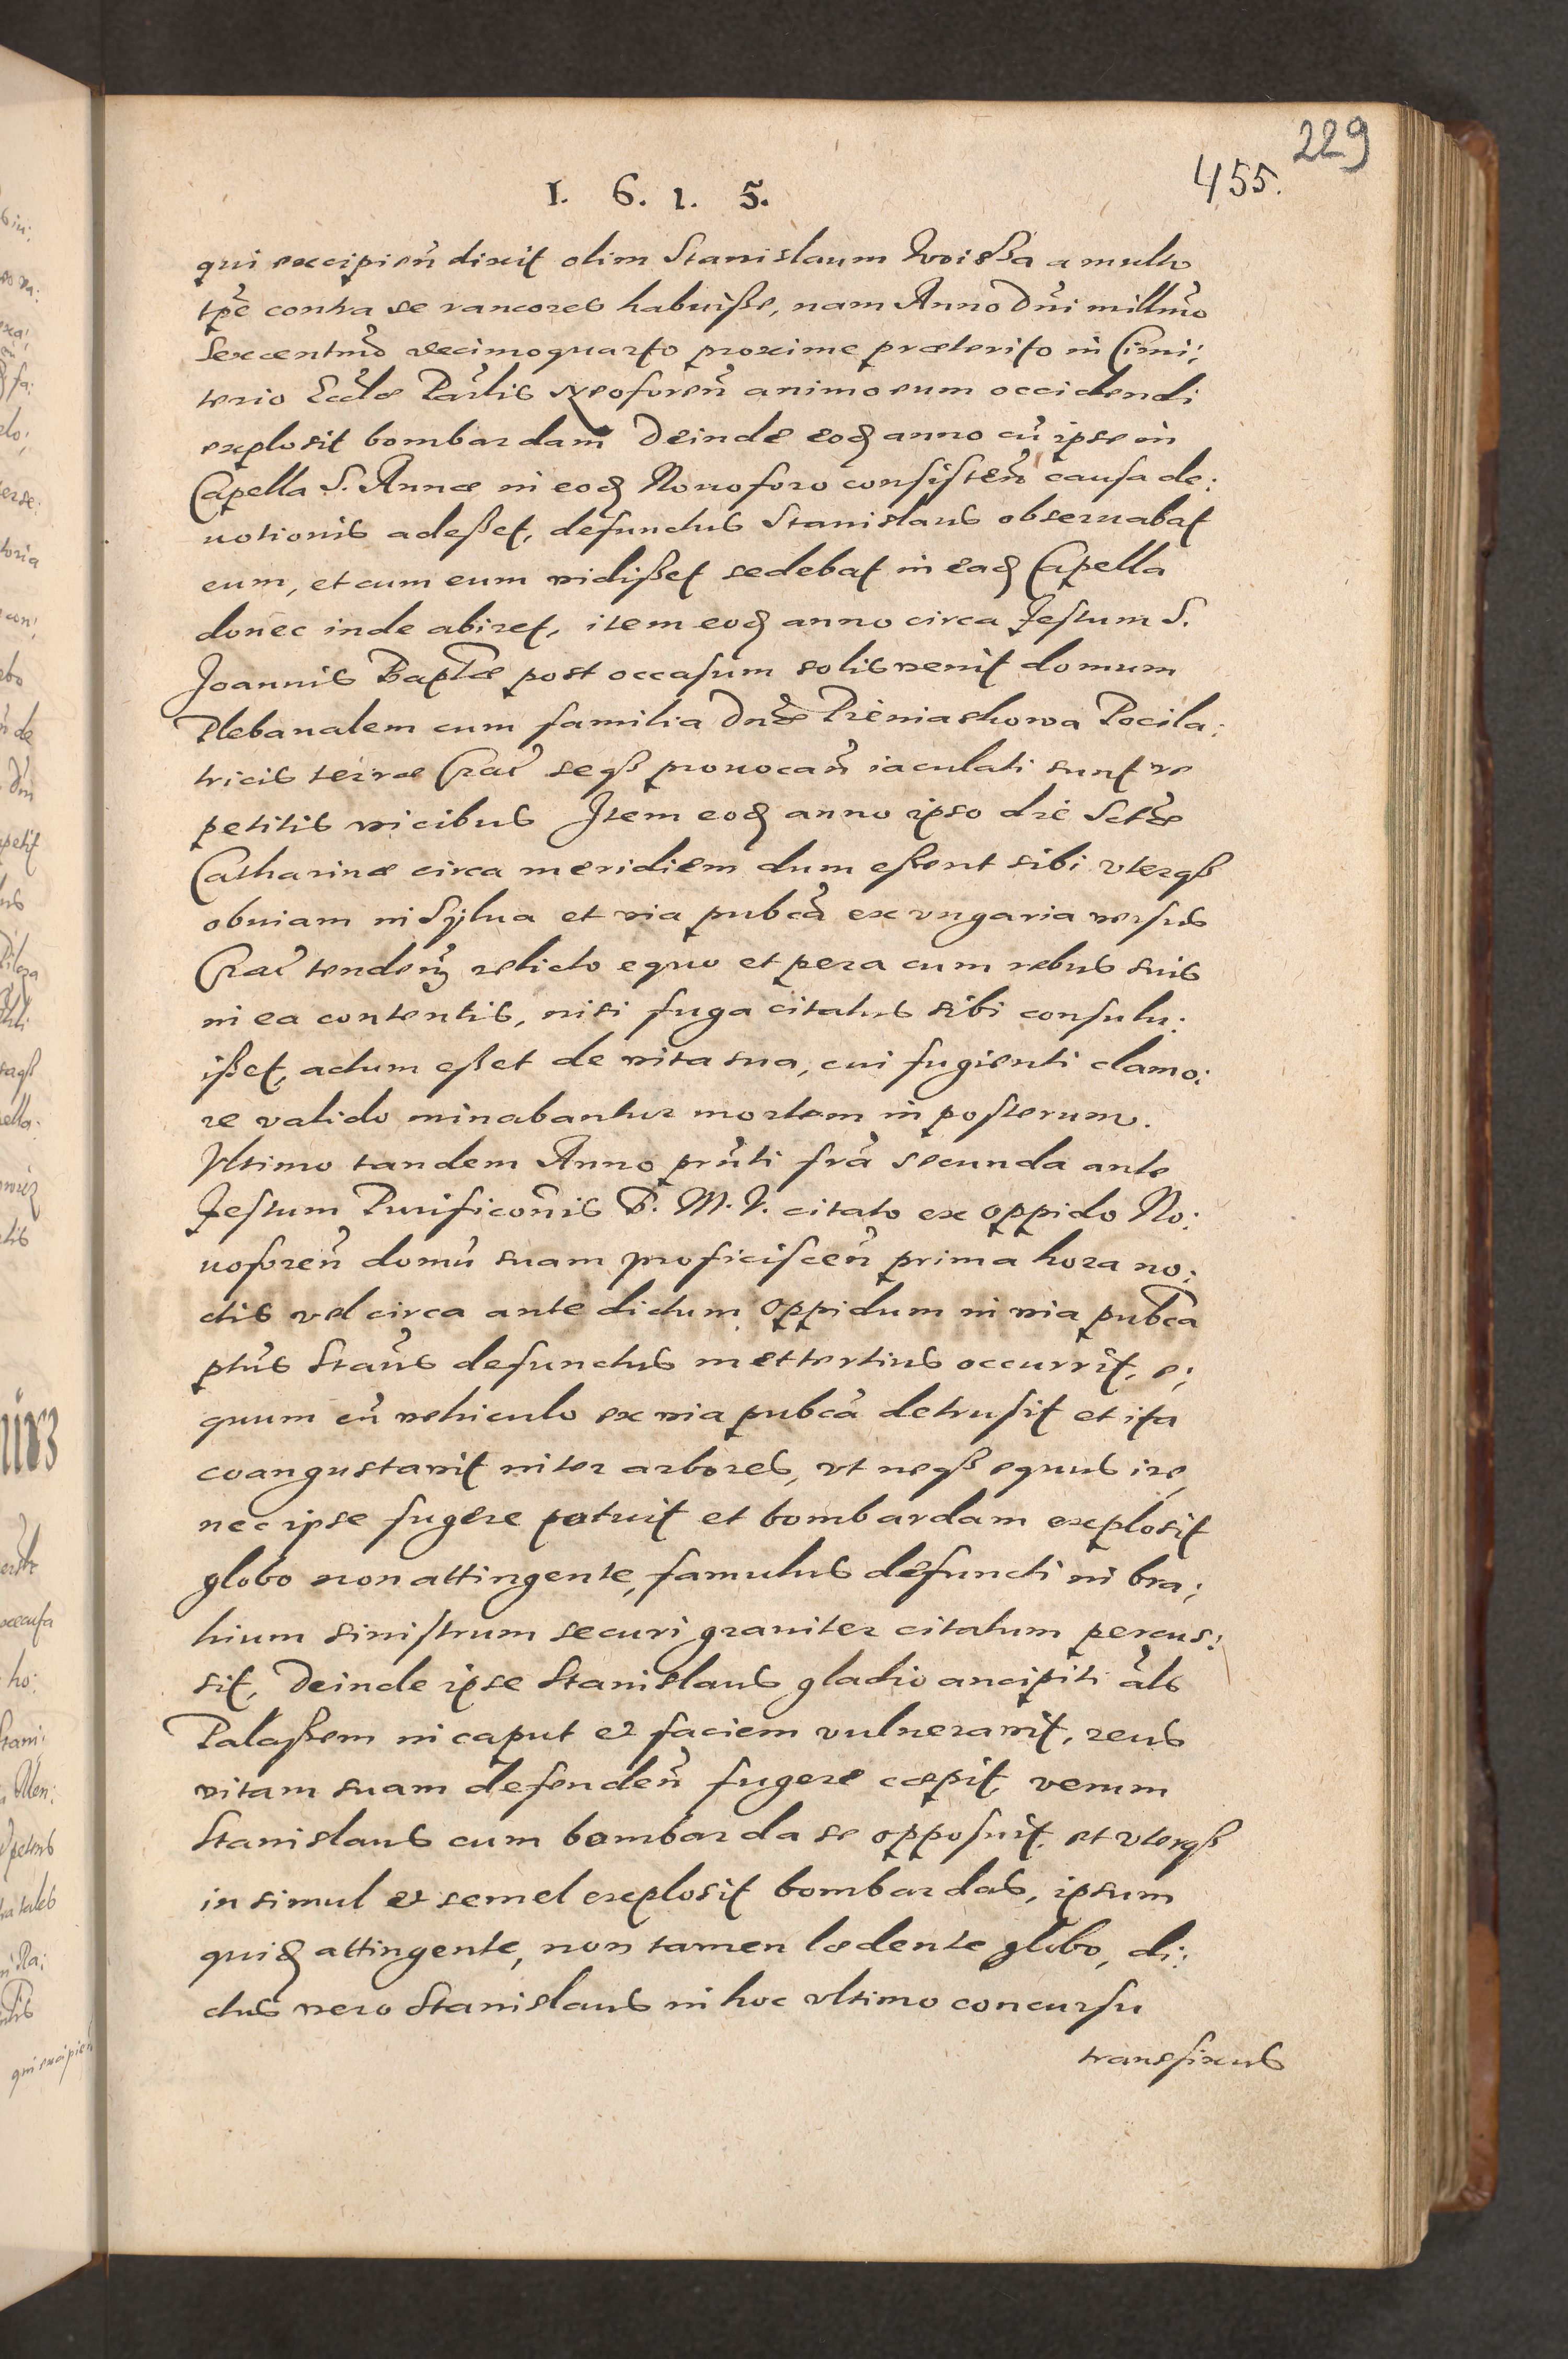 229
455.
1. 6. 1. 5.
qui excipien̄ dixit olim Stanislaum a multo
tpē contra se rancores habuisse, nam Anno Dn̄i millm̄o
Sexcentm̄o decimoquarto proxime præterito in Cimi:
terio Eccl̄æ Par̄lis Neoforen̄ animo eum occidendi
explosit bombardam Deinde eoḍ anno cū ipse in
Capella S. Annæ in eoḍ Nouoforo consisten̄ causa de:
uotionis adesset, defunctus Stanislaus obseruabat
eum, et cum eum vidisset sedebat in eaḍ Capella
donec inde abiret, item eoḍ anno circa Festum S.
Joannis Bapt̄æ post occasum solis venit domum
Plebanalem cum familia Dn̄æ Pieniaskowa Pocila:
tricis terræ Crac̄ seqß prouocan̄ iaculati sunt re
petitis vicibus Item eoḍ anno ipso die Sct̄æ
Catharinæ circa meridiem dum essent sibi vterqß
obuiam in Sylua et via pubc̄a ex vngaria versus
Crac̄ tenden̄ relicto equo et pera cum rebus suis
in ea contentis, nisi fuga citatus sibi consulu:
isset, actum esset de vita sua, cui fugienti clamo:
re valido minabantur mortem in posterum.
Vltimo tandem Anno prn̄ti fr̄a secunda ante
Festum Purificōnis B. M. V. citato ex oppido No:
uoforen̄ domū suam proficiscen̄ prima hora no:
ctis vel circa ante dictum oppidum in via pubc̄a
pt̄us Stan̄us defunctus mettertius occurrit, e:
quum cū vehiculo ex via pubc̄a detrusit et ita
coangustauit inter arbores, vt neqß equus ire
nec ipse fugere potuit et bombardam explosit
globo non attingente, famulus defuncti in bra:
hium sinistrum securi grauiter citatum percus:
sit, Deinde ipse Stanislaus gladio ancipiti al̄s
Palassem in caput et faciem vulnerauit, reus
vitam suam defenden̄ fugere cæpit, verum
Stanislaus cum bombarda se opposuit, et vterqß
in simul et semel explosit bombardas, ipsum
quiḍ attingente, non tamen lædente globo, di:
ctus vero Stanislaus in hoc vltimo concursu
transfixus